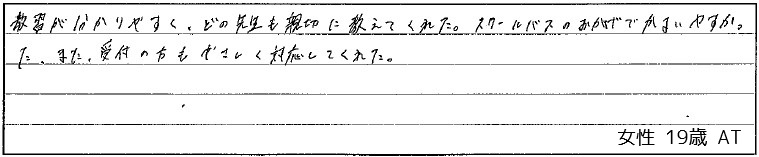 教習が分かりやすく、どの先生も親切に教えてくれた。スクールバスのおかげでかよいやすかっ
た。また、受付の方もやさしく対応してくれた。
女性 19歳 AT